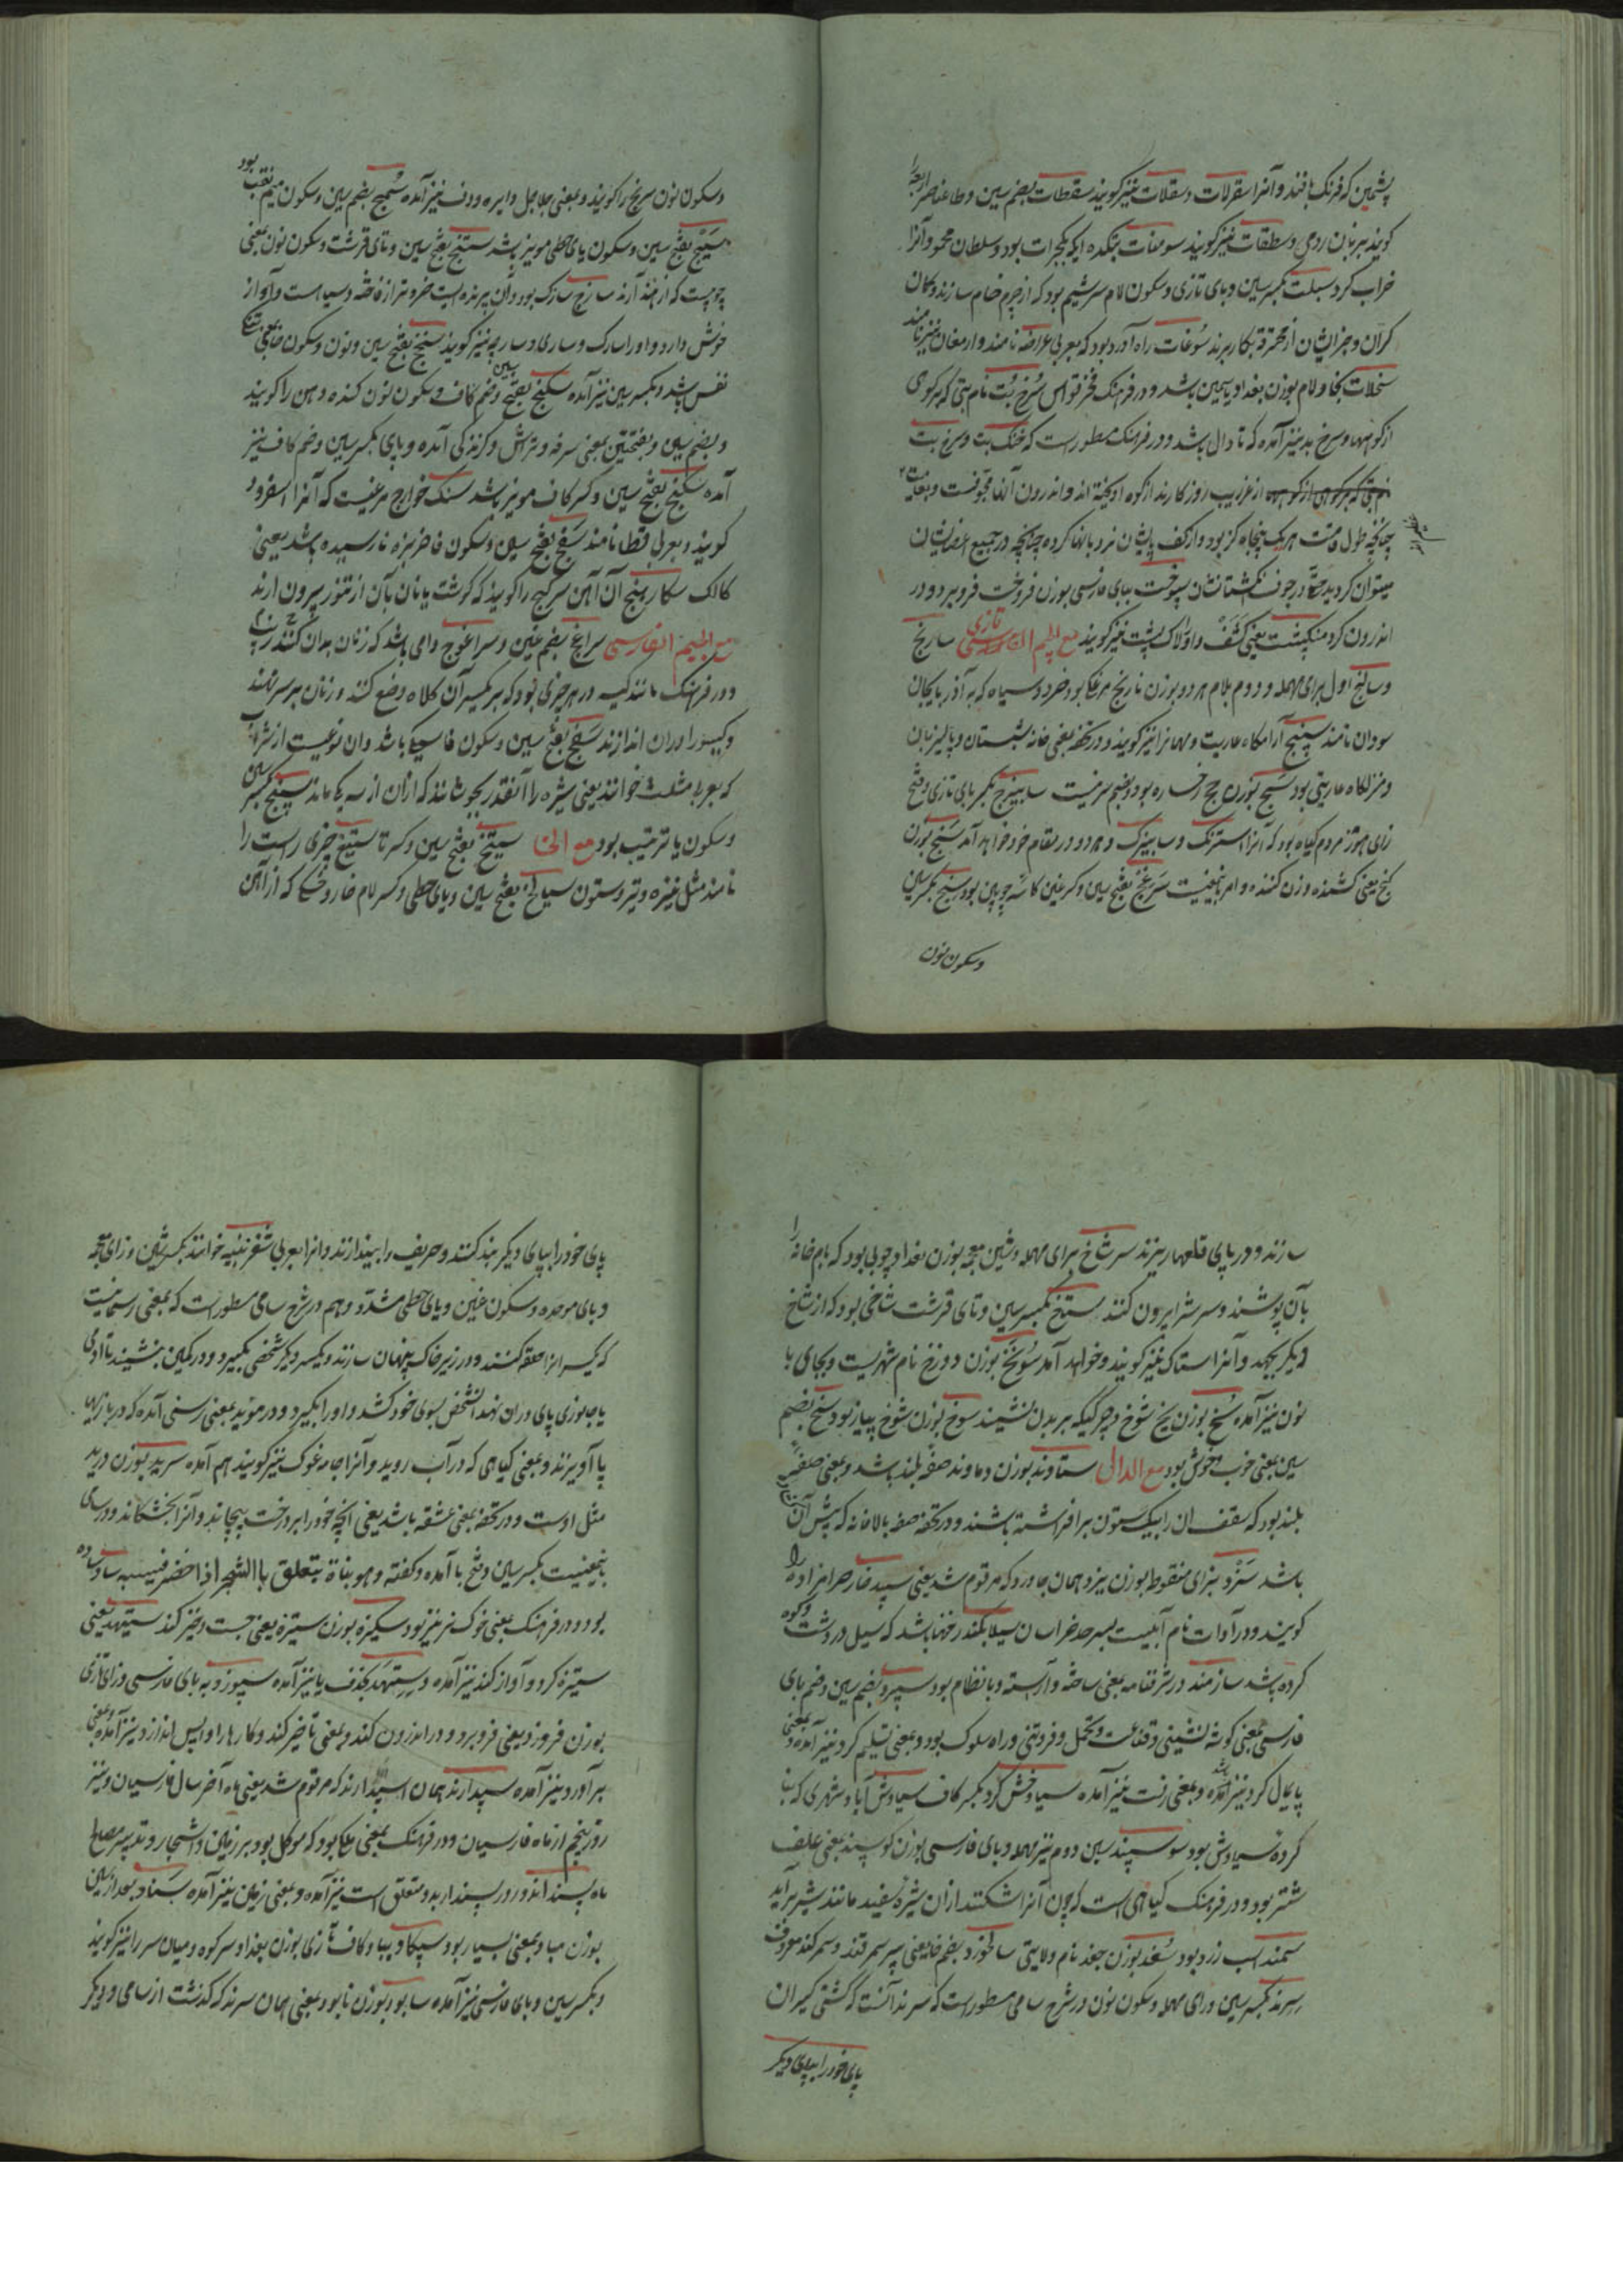 پشمین که فرنک بافند و آنرا سقرلات و سقلات نیز کویند سقطات بضم سین و طا عناصر اربعه را
کویند بزبان رومی و سطقات نیز کویند سومنات بتکده ایکه بکجرات بود و سلطان محمود آنرا
خراب کرد سبلت بکسر سین و بای تازی و سکون لام سریشیم بود که از چرم خام سازند و کمان
کران و جز ایشان از بکار برند سوغات راه آورد بود که بعربی عراضه نامند و ارمغان نیز نامند
سخلات بخا و لام بوزن بغداد یاسمین باشد و در فرهنک فخر قواس سرخ بت نام بتی که برکوهی
از کوهها و سرخ بد نیز آمده که تا دال باشد و در فرهنک مسطور است که خنک بت و سرخ بت
از غرایب روزکارند از کوه اویخته اند و اندرون آنها مجوفست و بغایت
چنانکه طول قامت هریک پنجاه کز بود و از کف پای ایشان نردبانها کرده چنانچه در جمیع اعضای ایشان
میتوان کردید حتا در جوف انکشتانشان سپوخت ببای فارسی بوزن فروخت فرو برد و در
اندرون کرد سنکپشت یعنی کشف و او را لاک پشت نیز کویند مع الجیم تازی سارنج
و سالنج اول برای مهمله و دوم بلام هر دو بوزن نارنج مرغکی بود خرد و سیاه که به آذربایجان
سودان نامند سپنج آرامکاه عاریت و مهمانرا نیز کویند و در تحفه بمعنی خانه شبستان و پالیزبان
و منزلکاه عاریتی بود سج بوزن حج رخساره بود و بضم سرفیست سابیزج بکسر بای تازی و فتح
زای هوز مردم کیاه بود که آنرا استرنک و سابیزک و هر دو در مقام خود خواهد آمد سنج بوزن
کنج یعنی کشنده و زن کننده و امر باینمعنیست سرغج بفتح سین و کسر غین کاسه چوبین بود سنج بکسر سین
و سکون نون
و سکون نون سرنج را کویند و بمعنی جلاجل دایره و دف نیز آمده سمج بضم سین و سکون میم نقب بود
سیج بفتح سین و سکون یای حطی مویز باشد ستنج بفتح سین و تای قرشت و سکون نون بمعنی
چوبیست که از هند آرند سارج سارک بود و آن پرنده ایست خردتر از فاخته و سیاست و آواز
خوش دارد و او را سارک و ساری و سارچه نیز کویند سنج بفتح سین و نون و سکون خا یعنی تنکی
نفس باشد و بکسر سین نیز آمده سکنج بفتح سین و ضم کاف و سکون نون کنده دهن را کویند
و بضم سین و بفتحتین بمعنی سرفه و تراش و کزندکی آمده و بای بکسر سین و ضم کاف نیز
آمده سکج بفتح سین و کسر کاف مویز باشد سنک خوارج مرغیست که آنرا اسفرود
کویند و بعربی قطا نامند سفج بفتح سین و سکون فا خربزه نارسیده باشد یعنی
کالک سکارهنج آن آهن سر کج را کویند که کوشت یا نان بآن از تنور بیرون ارند
مع الجیم الفارسی سراغج بضم غین و سراغوج دامی باشد که زنان بدان کنند
و در فرهنک مانند کیسه در هر چیزی بود که بر یکسر آن کلاه وضع کنند و زنان بر سر نهند
و کیسو را در آن اندازند سفج بفتح سین و سکون فا سیکی باشد و ان نوعیست از شراب
که بعربی مثلث خوانند یعنی شیره را آنقدر بجوشانند که از آن از سه یکی ماند سیپج بکسر سین
و سکون یا ترتیب بود مع الخا ستیخ بفتح سین و کسر تا ستیغ چیزی راست را
نامند مثل نیزه و تیر و ستون سیالخ بفتح سین و یای حطی و کسر لام خار و خسکی که از آهن
سازند و در پای قلعها ریزند سرشاخ برای مهمله و شین معجمه بوزن بغداد چوبی بود که بام خانه را
بآن پوشند و سرش را بیرون کنند ستاخ بکسر سین و تای قرشت شاخی بود که از شاخ
دیکر بجهد و آنرا ستاک نیز کویند و خواهد آمد سونخ بوزن دوزخ نام شهریست و بجای با
نون نیز آمده سخ بوزن یخ شوخ و چرکیکه بر بدن نشیند سوخ بوزن شوخ پیاز بود سنخ بضم
سین بمعنی خوب و خوش بود مع الدال ستاوند بوزن دماوند صفه بلند باشد و بمعنی صفه
بلند بود که سقف ان را بیک ستون برافراشته باشند و در تحفه صفه بالاخانه که پیش آن
باشد سزد بزای منقوطه بوزن یزد همان جاورد که مرقوم شد یعنی سپید خار حرامزاده را
کویند و در آدات نام آبیست بسرحد خراسان سیلابکند رخنها باشد که سیل در دشت و کوه
کرده باشد سازمند در شرفنامه بمعنی ساخته و آراسته و بانظام بود سپرد بضم سین و ضم بای
فارسی بمعنی کوشه نشینی و قناعت و تحمل و فروتنی و راه سلوک بود و بمعنی تسلیم کرد نیز آمده و بمعنی
پایمال کرد نیز آمده و بمعنی رفت نیز آمده سیاوخش کرد بکسر کاف سیاوش آباد و شهری که بنا
کرده سیاوش بود سوسپند بسین دوم نیز مهمله و بای فارسی بوزن کوسپند بمعنی علف
شتر بود و در فرهنک کیاهی است که چون آنرا شکنند از ان شیره سفید مانند شیر براید
سمند اسب زرد بود سغد بوزن جغد نام ولایتی ساخورد بضم خا یعنی پیر سمرقند و سمرکند معروف
سرند بکسر سین و رای مهمله و سکون نون در شرح سامی مسطور است که سرند آنست که کشتی کیران
پای خود را بپای دیکر
پای خود را بپای دیکر بند کنند و حریف را بیندازند و آنرا بعربی شغزبیه خوانند بکسر شین و زای معجمه
و بای موحده و سکون غین و یای حطی مشدد و هم در شرح سامی مسطور است که بمعنی رسمانیست
که یکسر انرا حلقه کنند و در زیر خاک پنهان سازند و یکسر دیکر شخصی بکیرد و در کمین بنشیند تا آدمی
یا جانوری پای در ان نهد انشخص بسوی خود کشد و او را بکیرد و در موید بمعنی رسنی آمده که در بازیها
پا آویزند و بمعنی کیاهی که در آب روید و آنرا جامه غوک نیز کویند هم آمده سرید بوزن درید
مثل اوست و در تحفه بمعنی عشقه باشد یعنی انچه خود را بر درخت پیچاند و آنرا بخشکاند و در سامی
باینمعنیست بکسر سین و فتح با آمده و کفته و هو بناة یتعلق باالشجر اذا اخضر فییبسه ساده
بود و در فرهنک بمعنی خوک نر نیز بود سکیزد بوزن ستیزه یعنی جست و خیز کند ستیهد یعنی
ستیزه کرد و آواز کند نیز آمده و ستهد بحذف یا نیز آمده سپوزد به بای فارسی و زای تازی
بوزن فروزد یعنی فرو برد و در اندرون کند و بمعنی تاخیر کند و کارها را واپس اندازد نیز آمده و بمعنی
برآورد نیز آمده سپندارند همان اسپندارند که مرقوم شد یعنی ماه آخر سال فارسیان و نیز
روز پنجم از ماه فارسیان و در فرهنک بمعنی ملکی بود که موکل بود بر زمین و اشجار و تدبیر مصالح
ماه سپند اند و روز سپندار بدو متعلق است نیز آمده و بمعنی زمین نیز آمده سناد بعد از سین
بوزن مباد بمعنی بسیار بود سپکاد بپا و کاف تازی بوزن بغداد سر کوه و میان سر را نیز کویند
و بکسر سین و بای فارسی نیز آمده سابود بوزن نابود بمعنی همان سرند که کذشت از سامی و دیکر